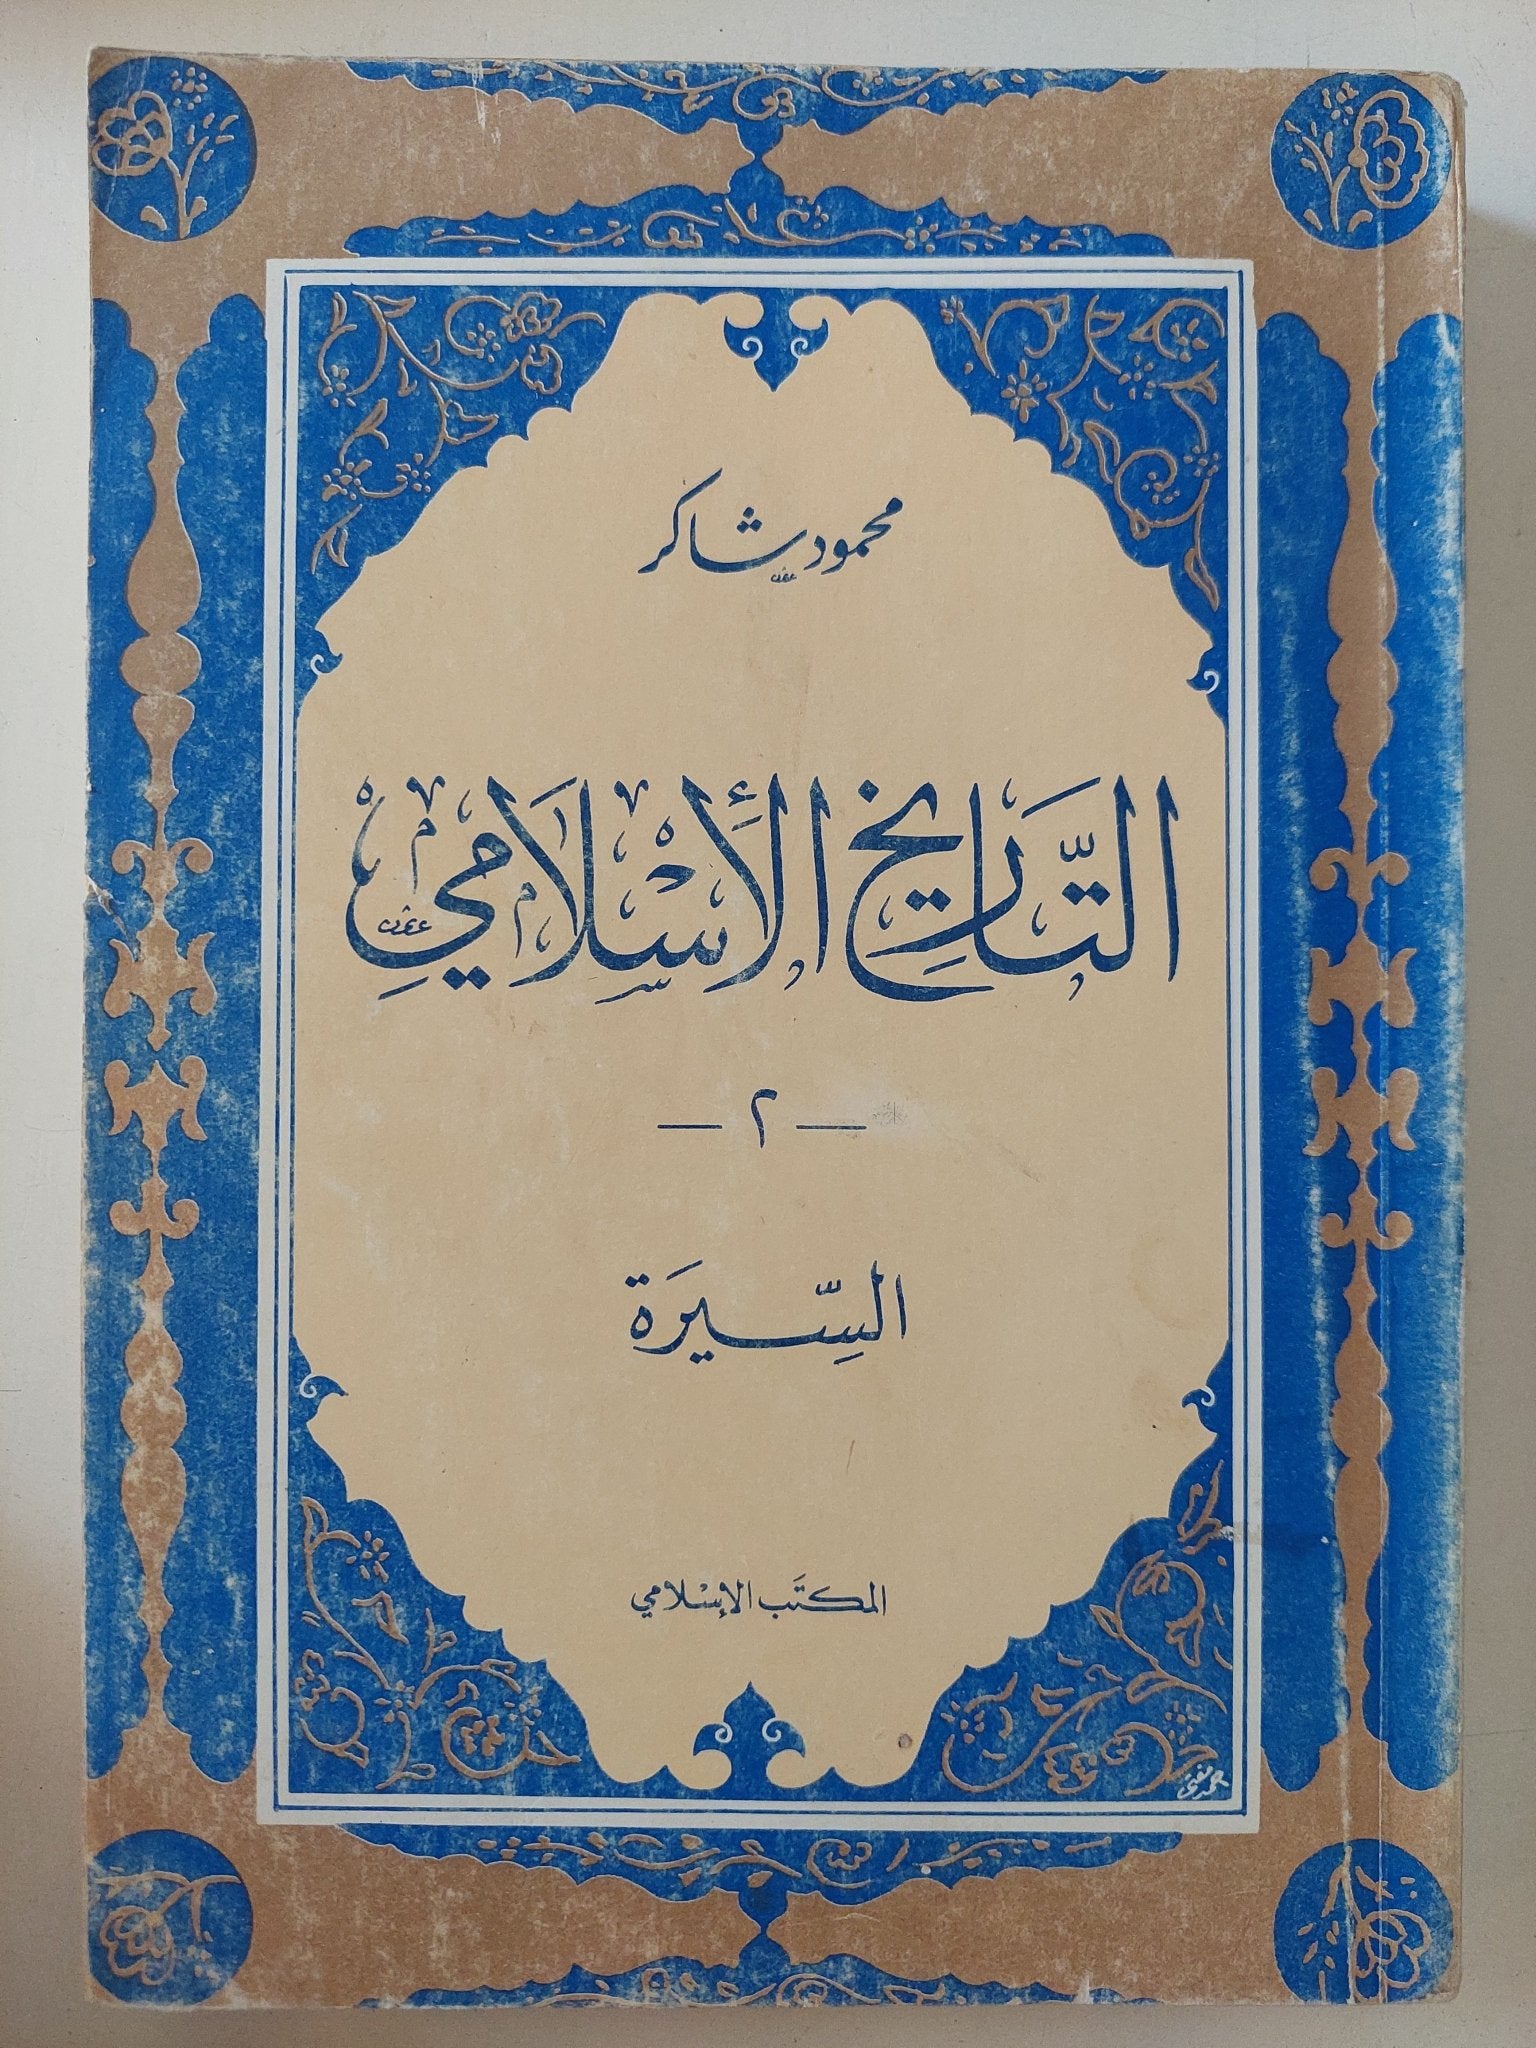 محمود شاكر
التَّاريخ الأَسْلَامي
- ٢ -
السِّيرَة
المكتَب الإسْلامي